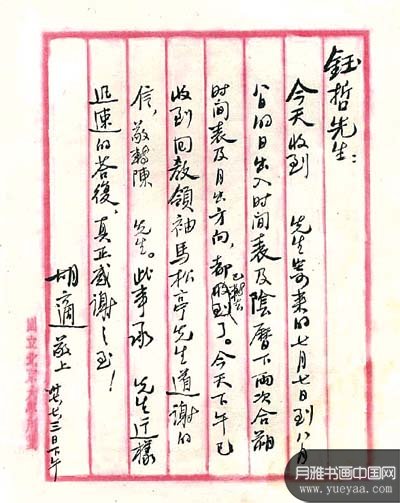 鈺哲先生：
今天收到 先生寄来的七月七日到八月
八日的日出入时间表及陰曆下兩次合朔
时间表及月出方向，都收到了。今天下午已
收到回教領袖馬松亭先生道謝的
信，敬轉陳 先生。此事承 先生这樣
迅速的答復，真正感謝之至！
胡適敬上 卅七三日下午
國立北京大學用箋
月雅书画中国网
www.yueyaa.com